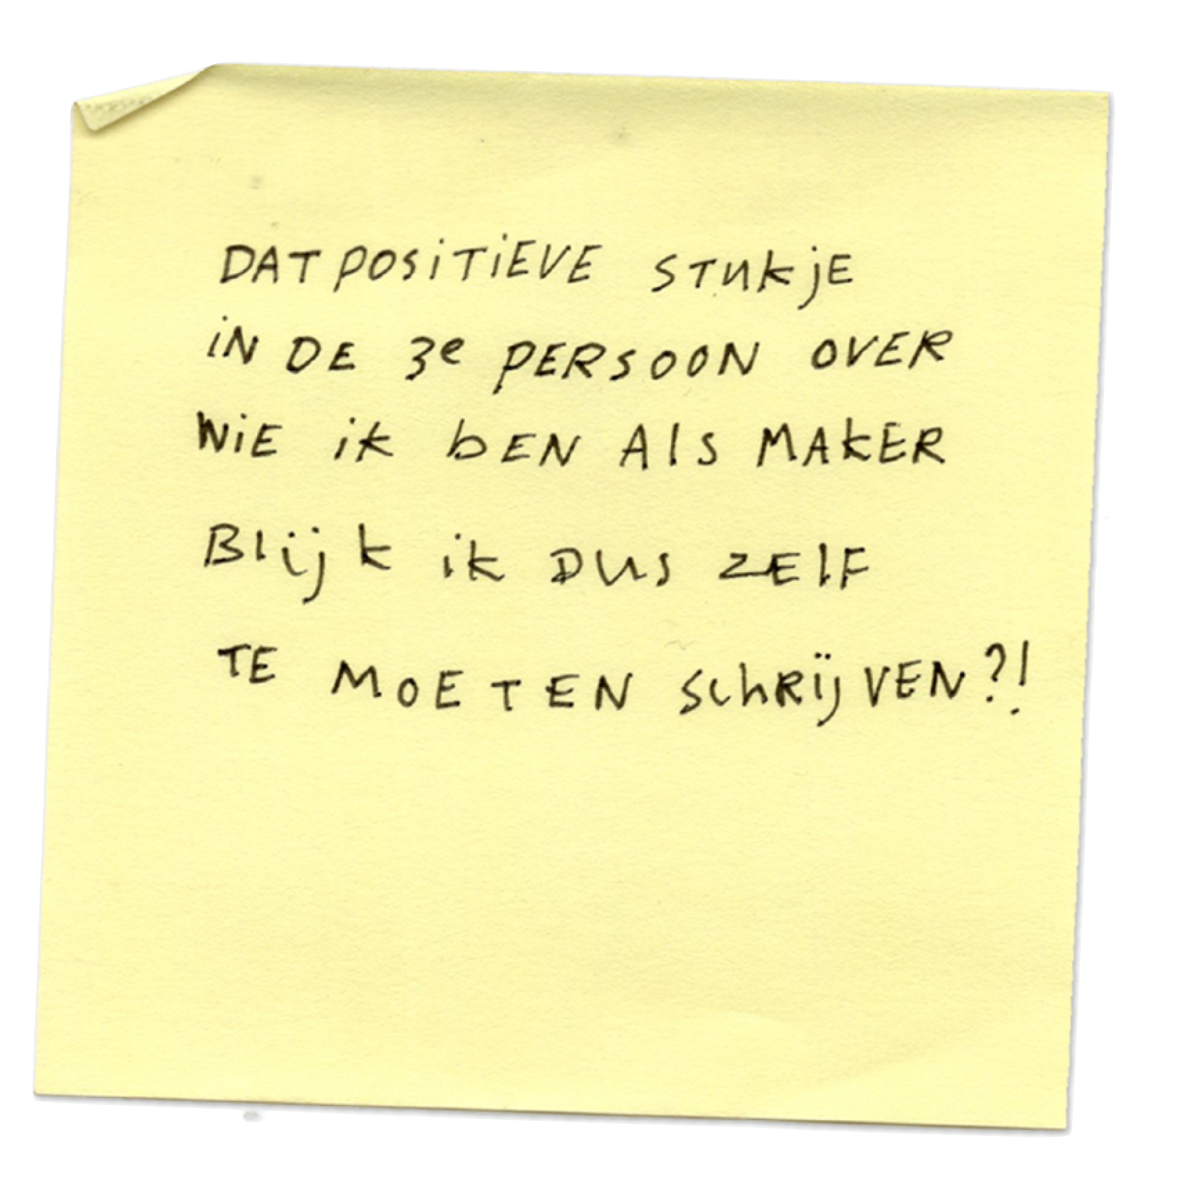 DAT POSITIEVE STUKJE
IN DE 3e PERSOON OVER
WIE IK BEN ALS MAKER
BLIJK IK DUS ZELF
TE MOETEN SCHRIJVEN?!